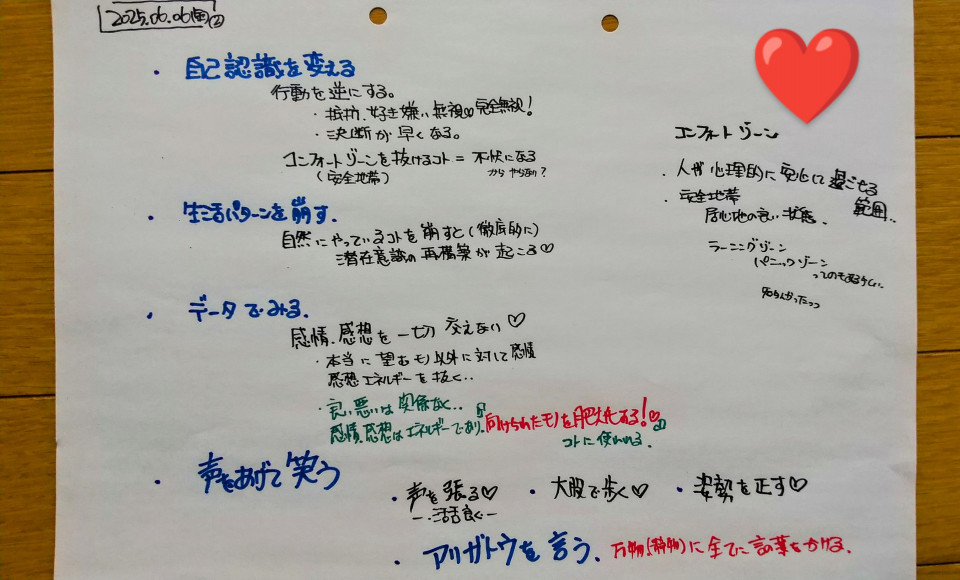 2025.06.06(金)②
・自己認識を変える
行動を逆にする。
・抵抗、好き嫌い無視♡完全無視!
・決断が早くなる。
コンフォートゾーンを抜けるコト = 不快になる
(安全地帯)
からやらない?
・生活パターンを崩す.
自然にやっているコトを崩すと(徹底的に)
潜在意識の再構築が起こる♡
・データでみる.
感情、感想を一切交えない♡
・本当に望むモノ以外に対して感情
感想エネルギーを抜く..
・良い悪いは関係なく..
感情、感想はエネルギーであり、向けられたモノを肥大化させる!♡
コトに使われる.
・声をあげて笑う
・声を張る♡ ・大股で歩く♡ ・姿勢を正す♡
・アリガトウを言う. 万物(静物)に全てに言葉をかける.
コンフォートゾーン
・人が心理的に安心して過ごせる
範囲..
・安全地帯
居心地の良い状態.
ラーニングゾーン
パニックゾーン
ってのもあるらしい..
知らんかったっっ